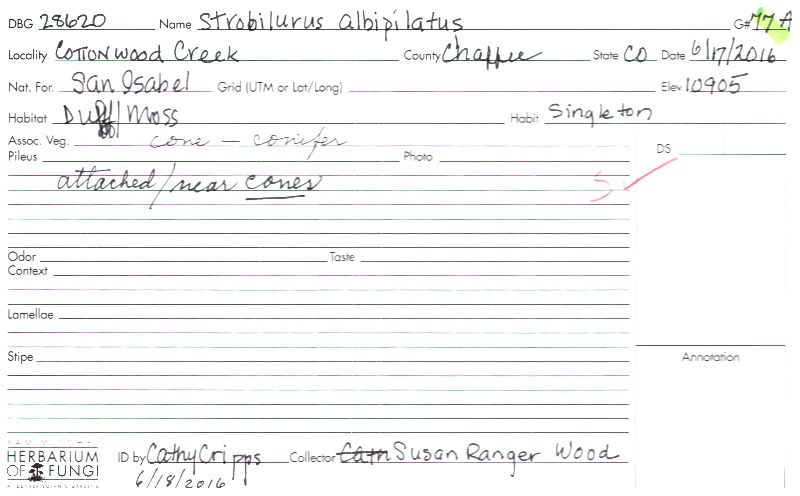 DBG 28620 Name Strobilurus albipilatus G# 77A
Locality Cottonwood Creek County Chaffee State CO Date 6/17/2016
Nat. For. San Isabel Grid (UTM or Lat/Long) Elev 10905
Habitat Duff/Moss Habit Singleton
Assoc. Veg. cone - conifer DS
Pileus Photo
attached/near cones
Odor Taste
Context
Lamellae
Stipe Annotation
HERBARIUM OF FUNGI
ID by Cathy Cripps Collector Susan Ranger Wood
6/18/2016